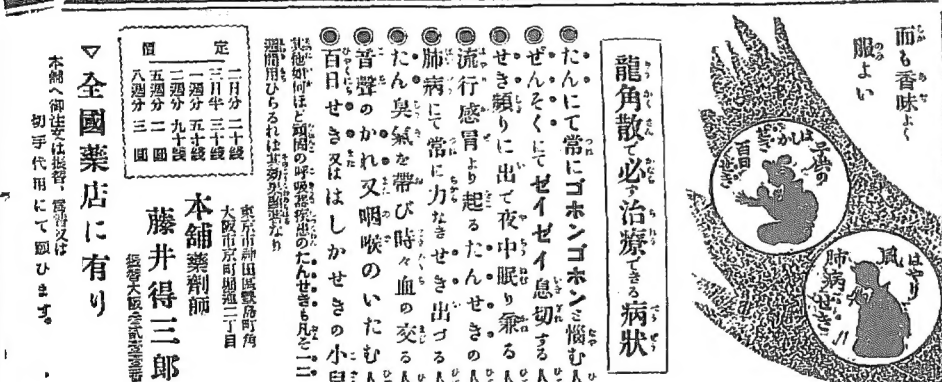 而も香味よく
服よい
子供の
はしか
百日
せき
風
はやり
肺病
せき
龍角散で必ず治療できる病狀
◉たんにて常にゴホンゴホンと惱む人
◉ぜんそくにてゼイゼイ息切する人
◉せき頻りに出て夜中眠り兼る人
◉流行感冒より起るたんせきの人
◉肺病にて常に力なきせき出づる人
◉たん臭氣を帶び時々血の交る人
◉音聲のかれ又咽喉のいたむ人
◉百日せき又ははしかせきの小兒
其他如何ほど頑固の呼吸器疾患のたんせきも凡そ一二
週間用ひらるれば其効
定價
二日分 二十錢
三日半 三十錢
一週分 五十錢
二週分 九十錢
五週分 二圓
八週分 三圓
東京市神田區豐島町角
大阪市京町堀通二丁目
本舖藥劑師
藤井得三郎
振替大阪
▽全國藥店に有り
本舖へ御注文は振替、爲替又は
切手代用にて願ひます。